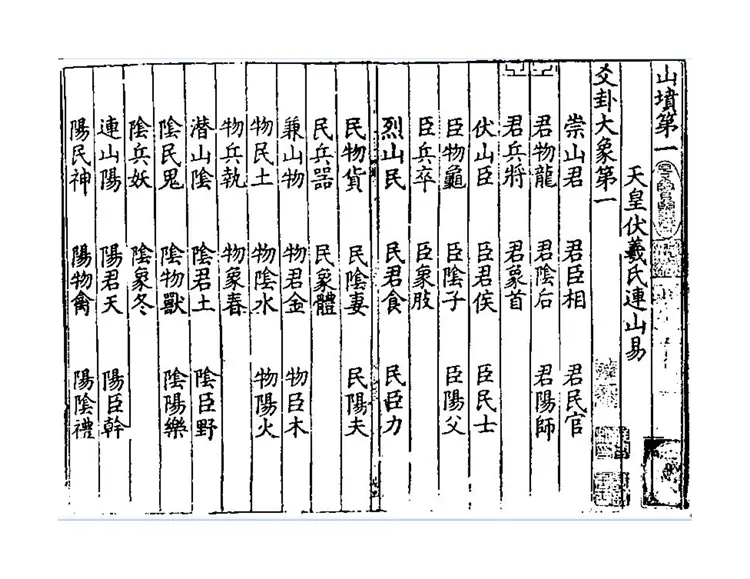 山墳第一
天皇伏羲氏連山易
爻卦大象第一
崇山君 君臣相 君民官
君物龍 君陰后 君陽師
君兵將 君象首
伏山臣 臣君侯 臣民士
臣物龜 臣陰子 臣陽父
臣兵卒 臣象股
烈山民 民君食 民臣力
民物貨 民陰妻 民陽夫
民兵器 民象體
兼山物 物君金 物臣木
物民土 物陰水 物陽火
物兵執 物象春
潜山陰 陰君土 陰臣野
陰民鬼 陰物獸 陰陽樂
陰兵妖 陰象冬
連山陽 陽君天 陽臣幹
陽民神 陽物禽 陽陰禮